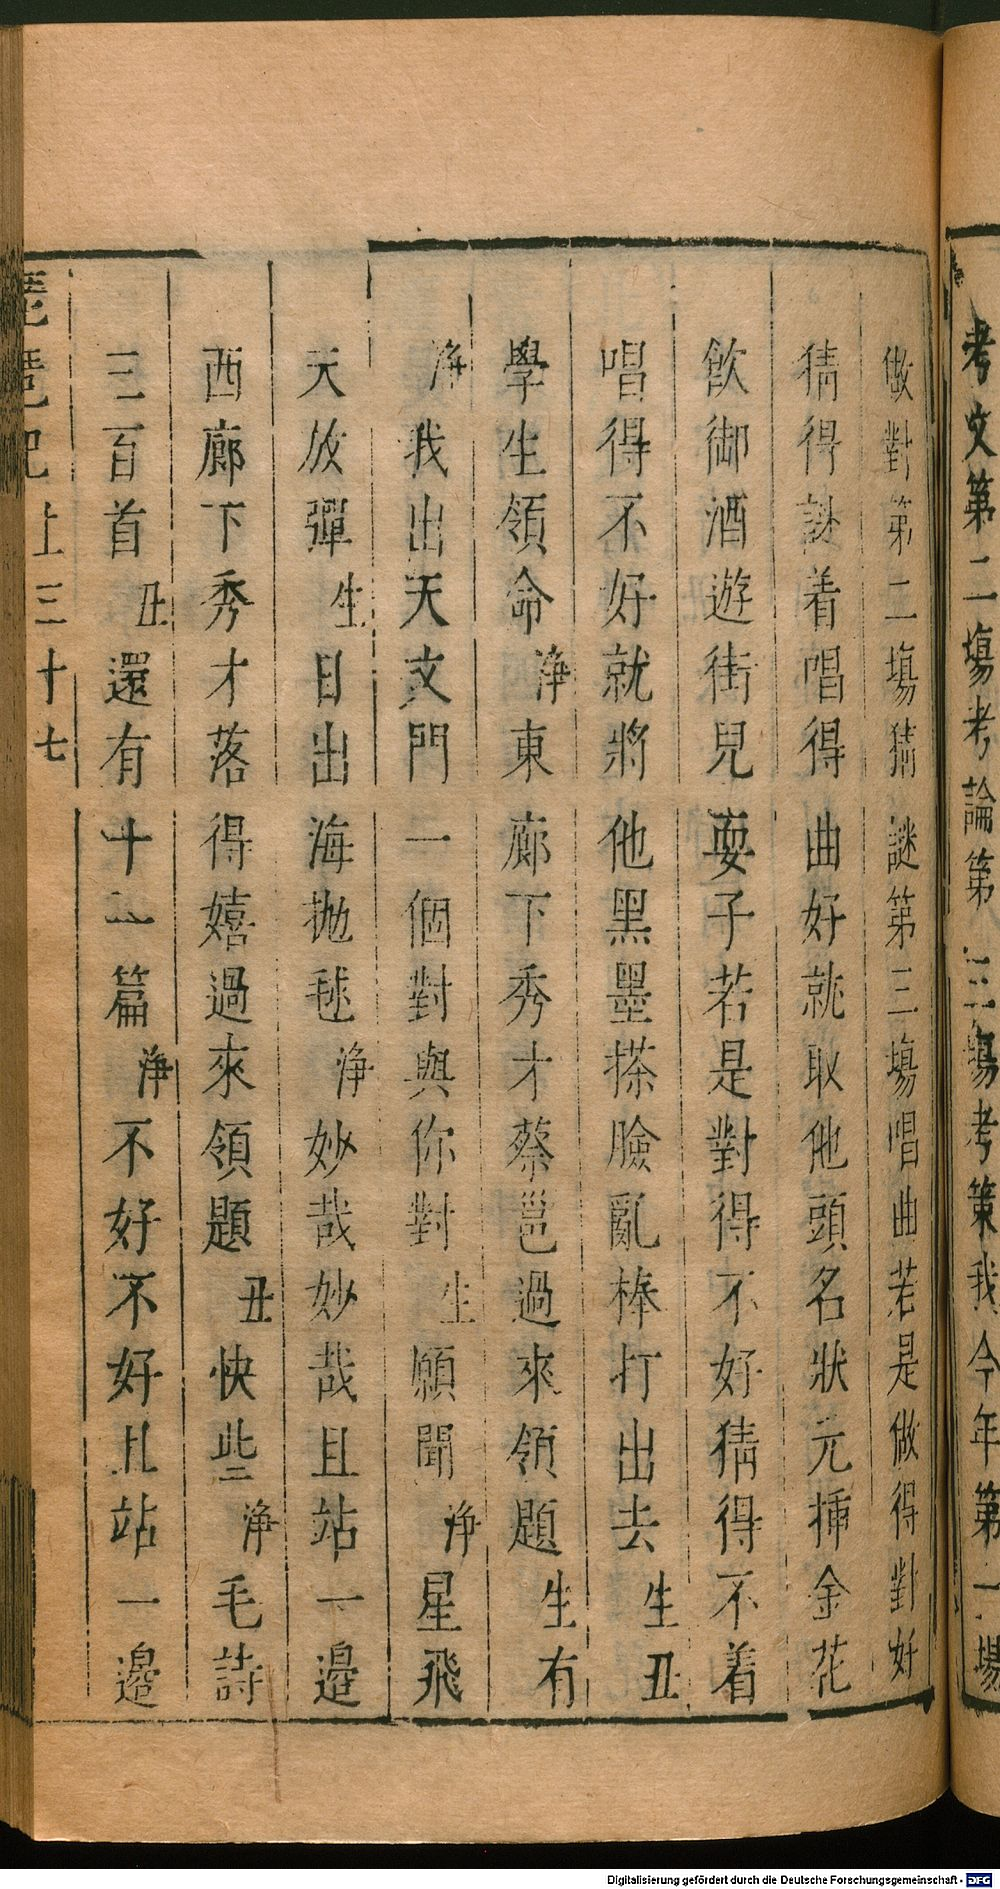 考文第二塲考論第三塲考策我今年第一塲
做對第二塲猜謎第三塲唱曲若是做得對好
猜得謎着唱得曲好就取他頭名狀元挿金花
飲御酒遊街兒耍子若是對得不好猜得不着
唱得不好就將他黑墨搽臉亂棒打出去生丑
學生領命淨東廊下秀才蔡邕過來領題生有
淨我出天文門一個對與你對生願聞淨星飛
天放彈生日出海拋毬淨妙哉妙哉且站一邊
西廊下秀才落得嬉過來領題丑快些淨毛詩
三百首丑還有十一篇淨不好不好且站一邊
琵琶記上三十七
Digitalisierung gefördert durch die Deutsche Forschungsgemeinschaft - DFG